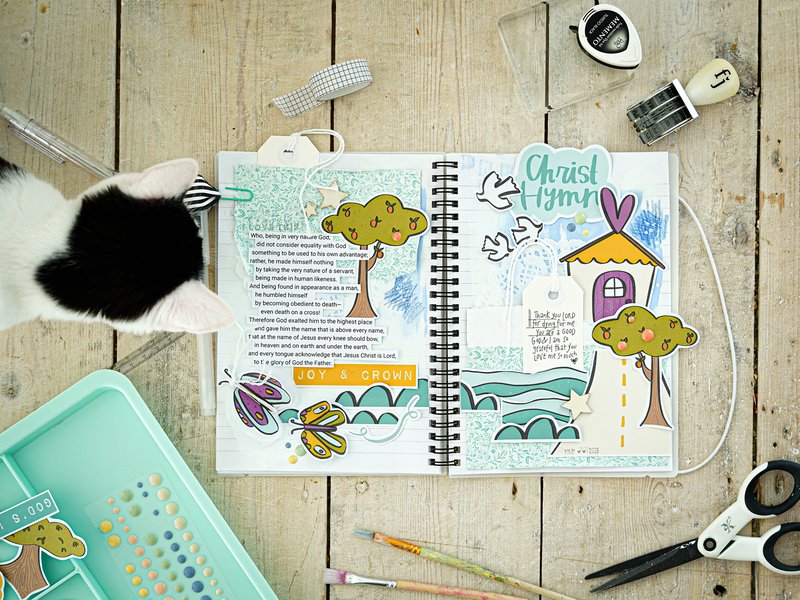 MEMENTO
fj
Christ
Hymn
Who, being in very nature God,
did not consider equality with God
something to be used to his own advantage;
rather, he made himself nothing
by taking the very nature of a servant,
being made in human likeness.
And being found in appearance as a man,
he humbled himself
by becoming obedient to death—
even death on a cross!
Therefore God exalted him to the highest place
and gave him the name that is above every name,
that at the name of Jesus every knee should bow,
in heaven and on earth and under the earth,
and every tongue acknowledge that Jesus Christ is Lord,
to the glory of God the Father.
JOY & CROWN
Thank you LORD
for dying for me
You are a GOOD
God & I am so
grateful that you
LOVE me so much
GOD'S